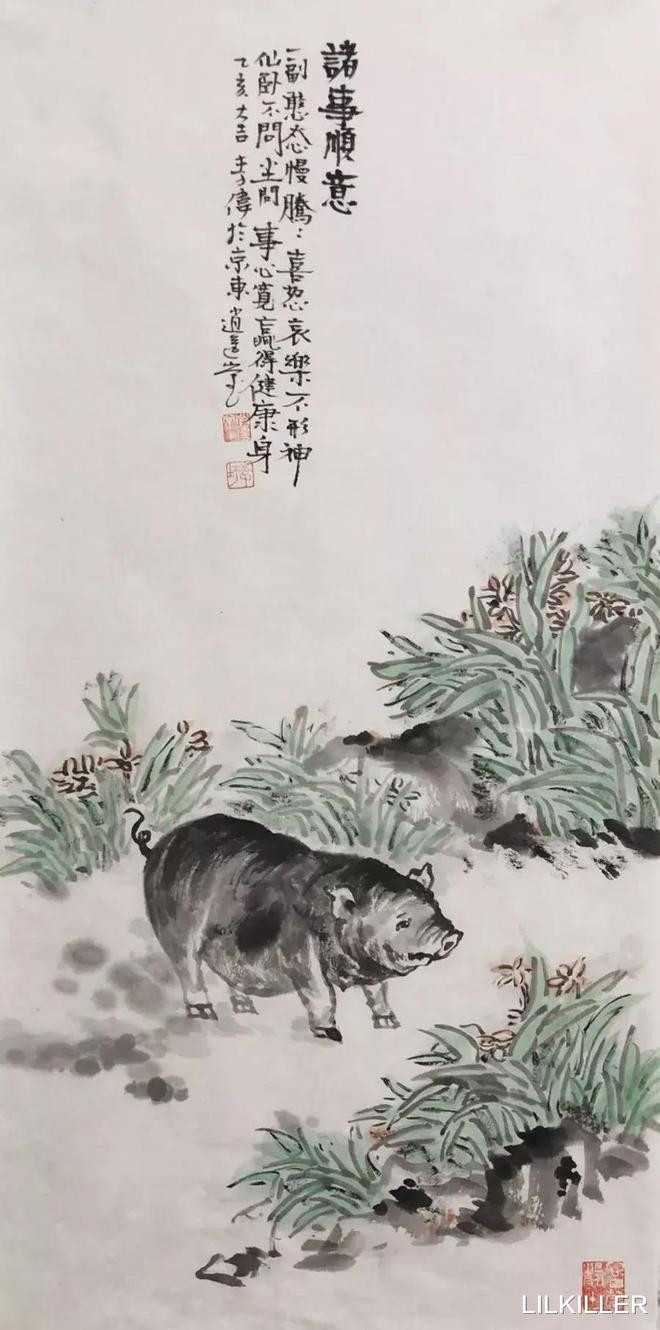 諸事順意
一副憨态慢騰〻喜怒哀樂不形神
仙卧不問坐問事心寬贏得健康身
乙亥大吉 偉於京東逍遥堂
LILKILLER